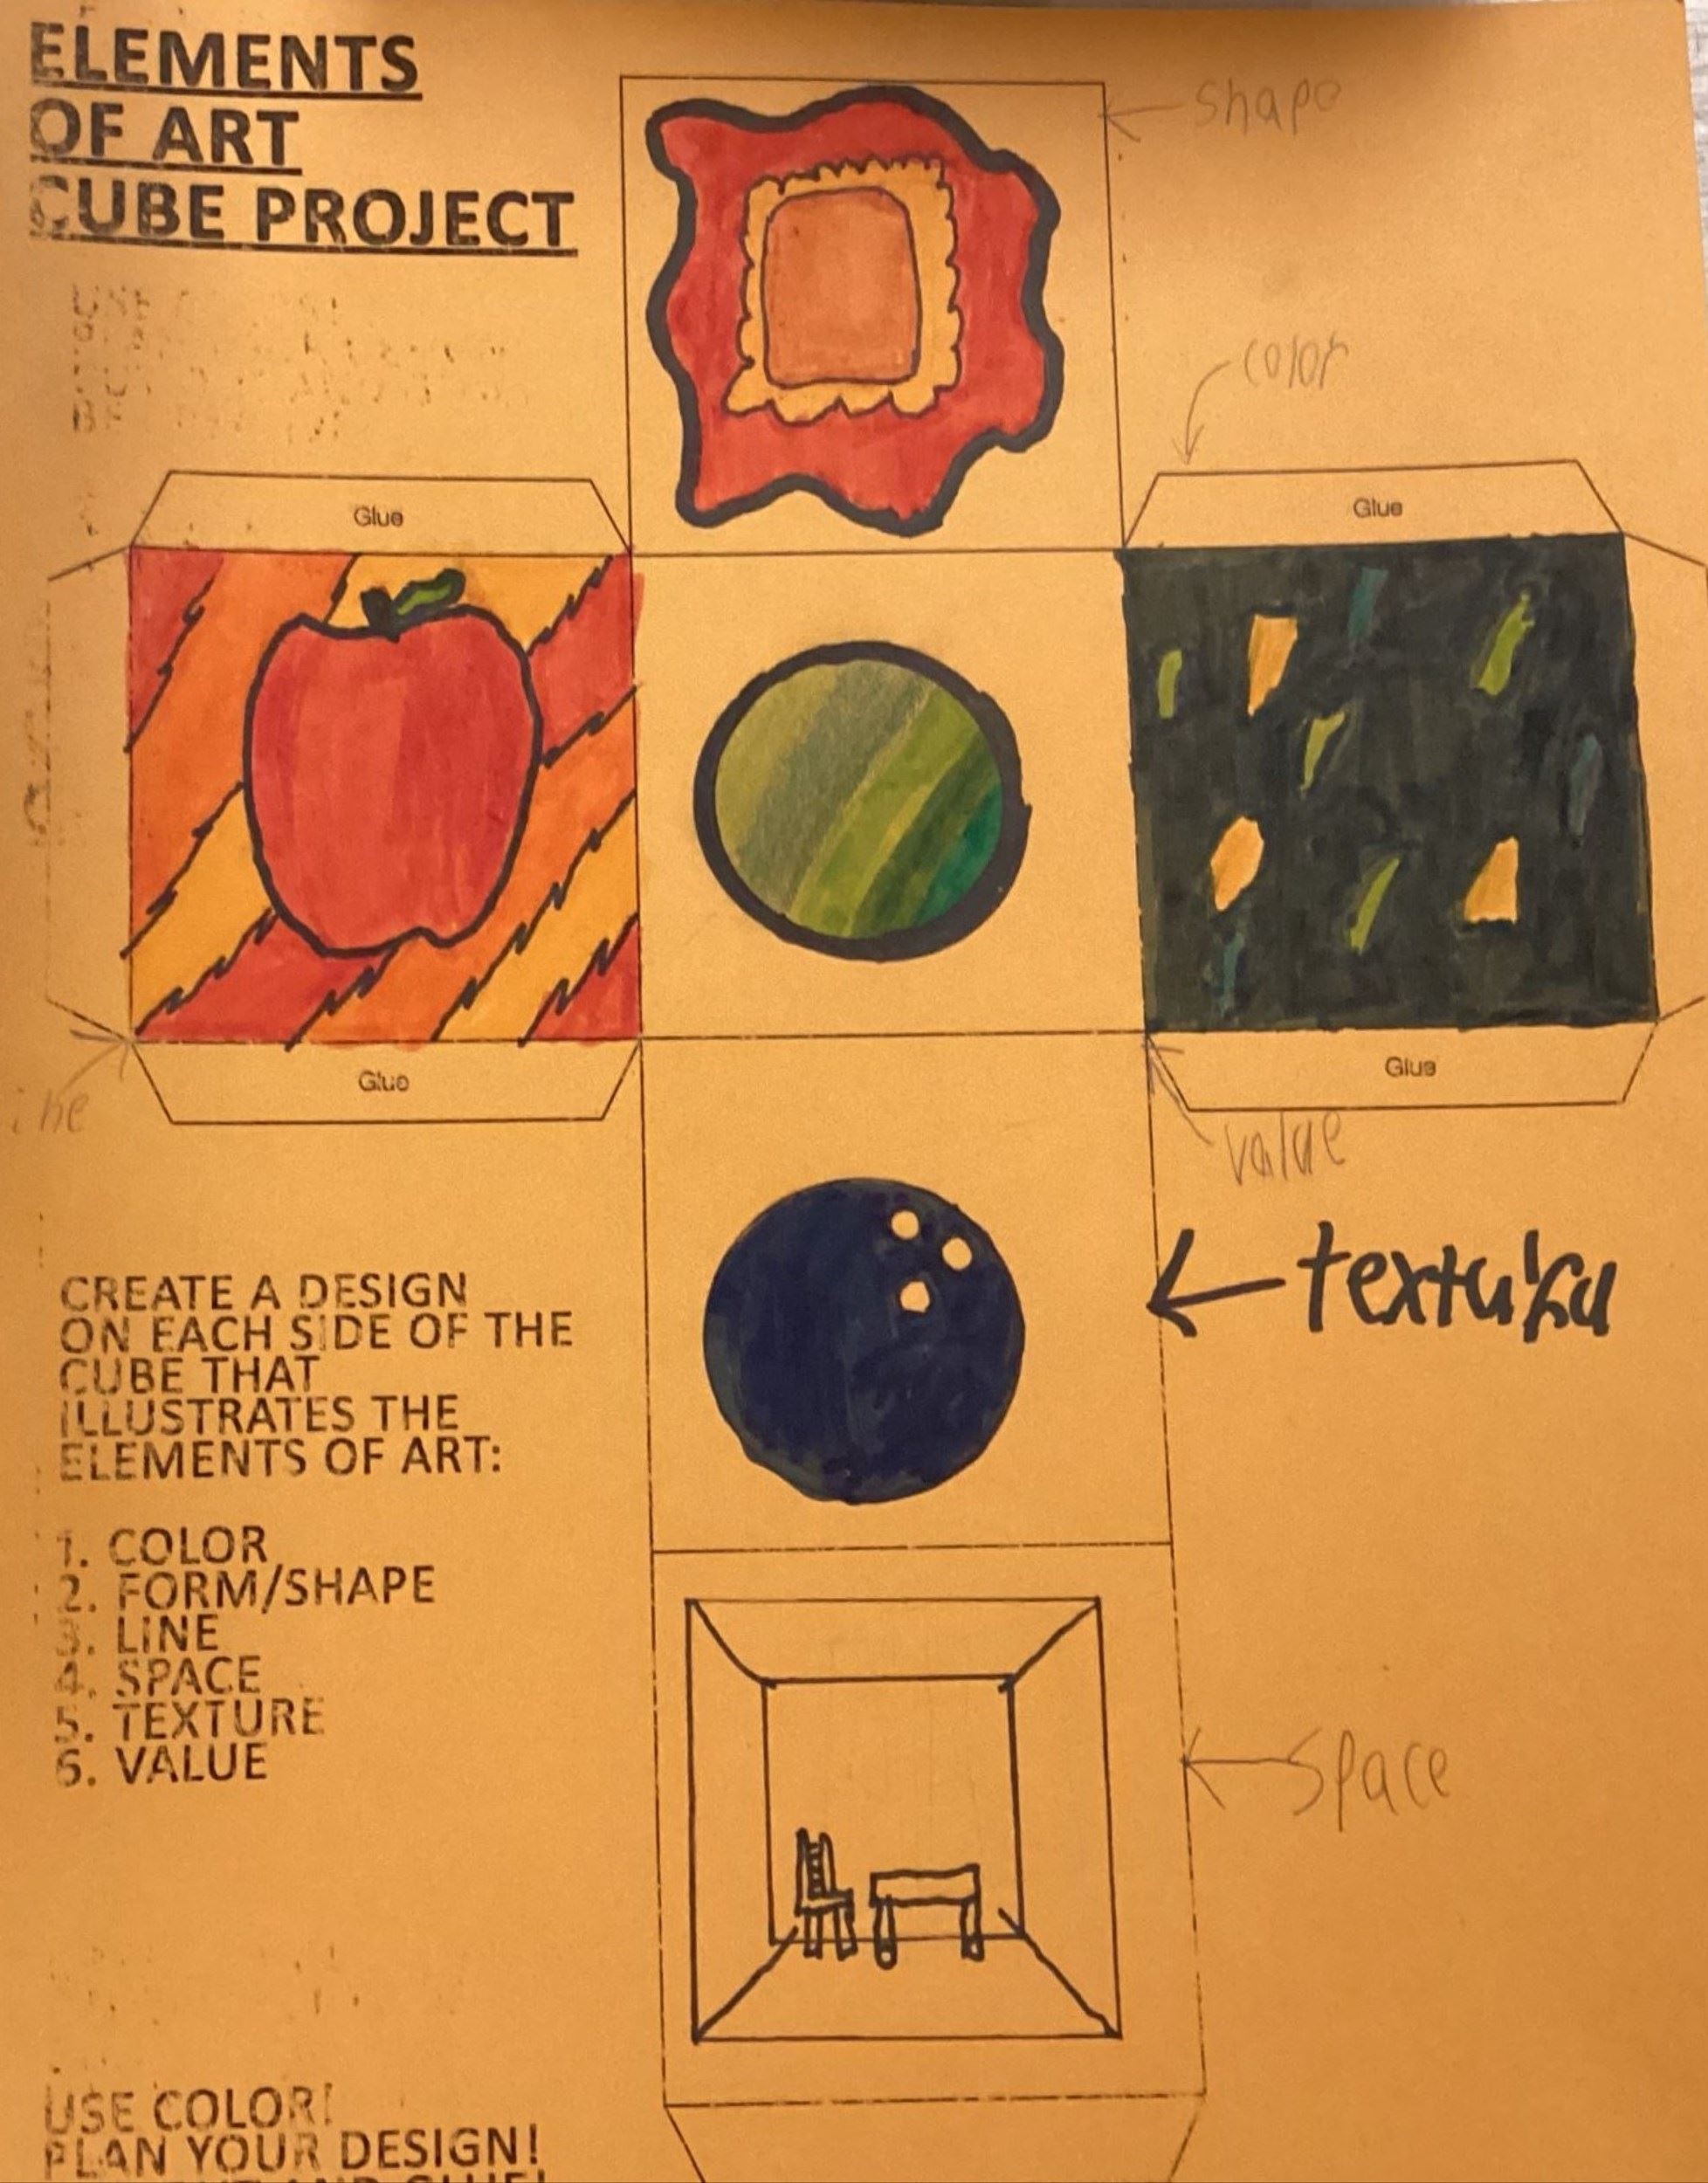 ELEMENTS
OF ART
CUBE PROJECT
shape
color
Glue
Glue
Glue
Glue
value
CREATE A DESIGN
ON EACH SIDE OF THE
CUBE THAT
ILLUSTRATES THE
ELEMENTS OF ART:
1. COLOR
2. FORM/SHAPE
3. LINE
4. SPACE
5. TEXTURE
6. VALUE
Space
USE COLOR!
PLAN YOUR DESIGN!